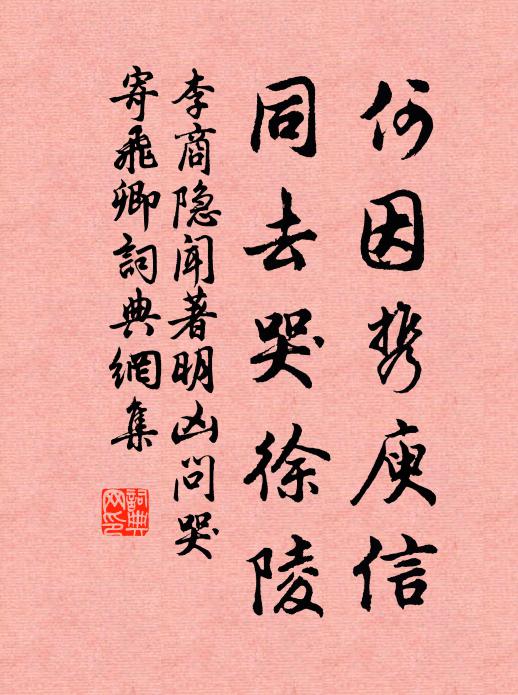 何因携庾信
同去哭徐陵
李商隐闻著明凶问哭
寄飛卿詞典網集
詞典
网印